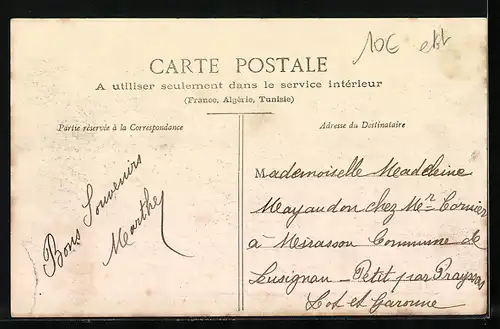 10€ ebt
CARTE POSTALE
A utiliser seulement dans le service intérieur
(France, Algérie, Tunisie)
Partie réservée à la Correspondance
Adresse du Destinataire
Bons Souvenirs
Marthe
Mademoiselle Madeleine
Mayaudon chez Mr Cornier
à Mirassou Commune de
Lusignan - Petit par Prayssas
Lot et Garonne